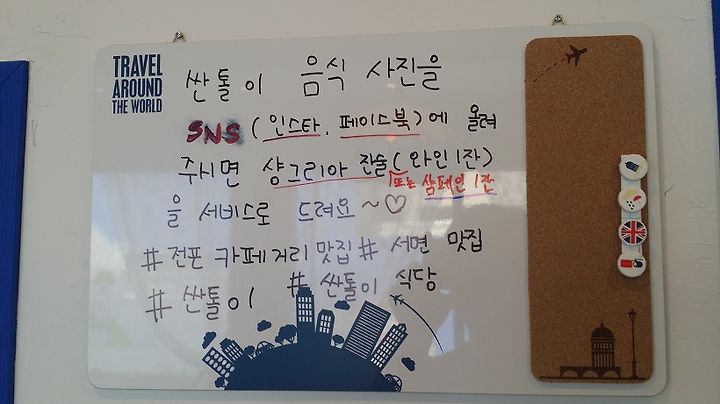 TRAVEL
AROUND
THE WORLD
싼톨이 음식 사진을
SNS (인스타, 페이스북)에 올려
주시면 샹그리아 잔술(와인 1잔)
또는 샴페인 1잔
을 서비스로 드려요~♡
#전포 카페거리 맛집 # 서면 맛집
#싼톨이 #싼톨이 식당